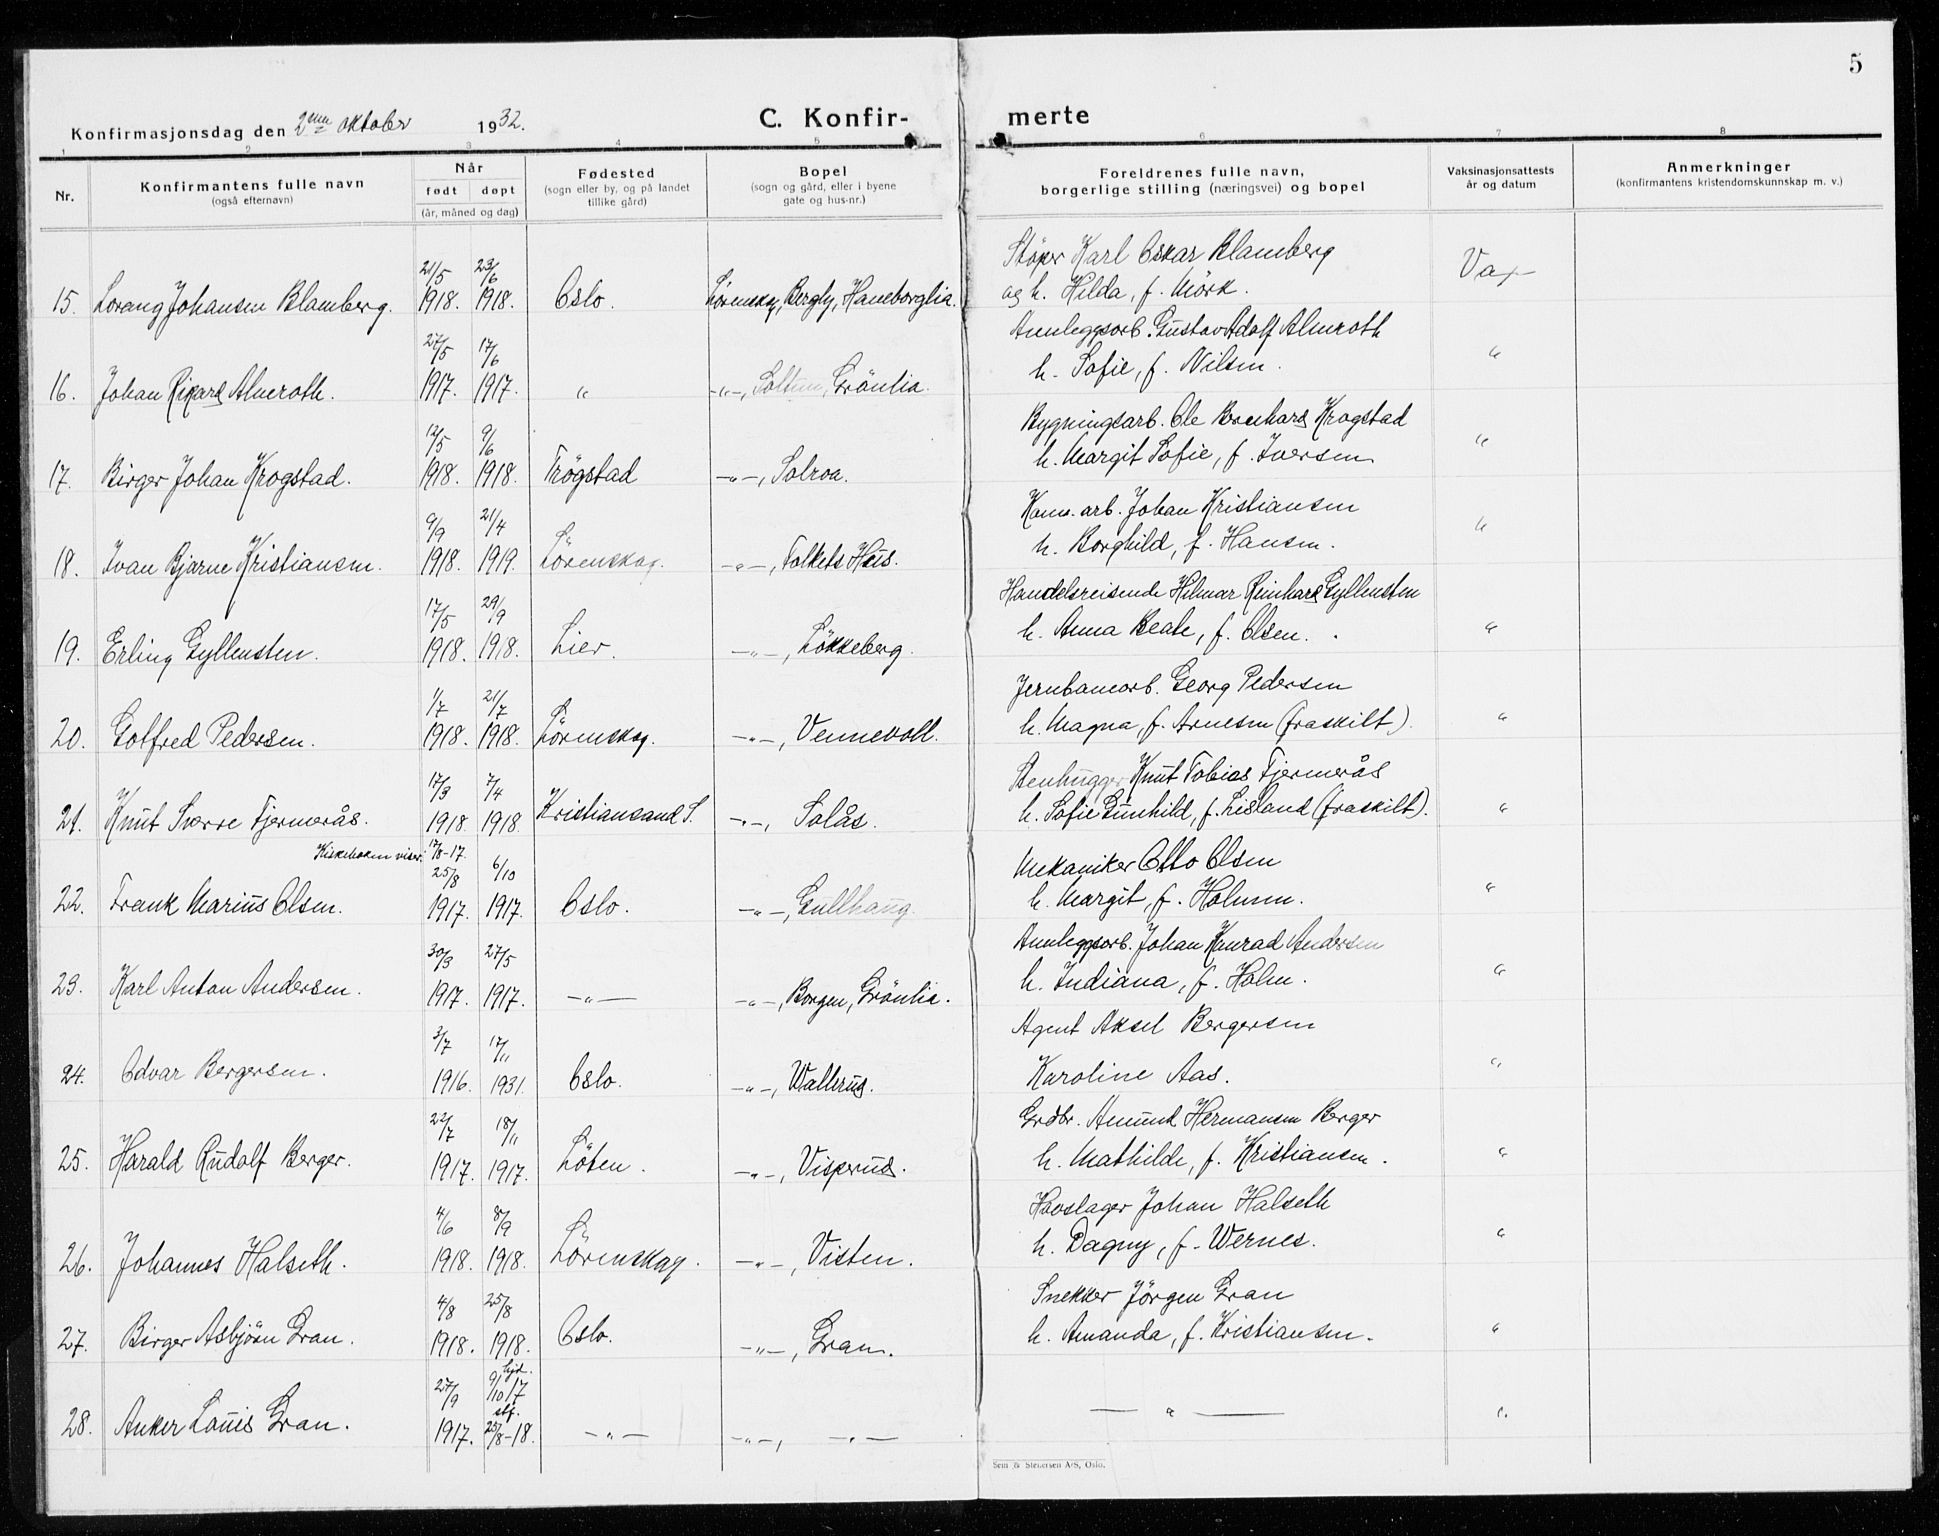 5
Konfirmasjonsdag den 2nen oktober 1932. C. Konfirmerte
1 2 3 4 5 6 7 8
Nr. Konfirmantens fulle navn (også efternavn) Når født døpt (år, måned og dag) Fødested (sogn eller by, og på landet tillike gård) Bopel (sogn og gård, eller i byene gate og hus-nr.) Foreldrenes fulle navn, borgerlige stilling (næringsvei) og bopel Vaksinasjonsattests år og datum Anmerkninger (konfirmantens kristendomskunnskap m. v.)
21/5 23/6 Støper Karl Oskar Blamberg
15. Lorang Johansen Blamberg. 1918. 1918. Oslo. Lørenskog, Bergly, Haneborglia. og h. Hilda, f. Mörk. Vax
27/5 17/6 Annleggsarb. Gustav Adolf Almroth
16. Johan Rikard Almeroth. 1917. 1917. " -"-, Soltun, Grönlia. h. Sofie, f. Nilsen. "
12/5 9/6 Bygningsarb. Ole Bernhard Krogstad
17. Birger Johan Krogstad. 1918. 1918. Trögstad -"-, Solroa. h. Margit Sofie, f. Iversen "
9/9 21/4 Komm. arb. Johan Kristiansen
18. Ivan Bjarne Kristiansen. 1918. 1919. Lörenskog. -"-, Folkets Hus. h. Borghild, f. Hansen. "
17/5 29/9 Handelsreisende Hilmar Reinhard Gyllensten
19. Erling Gyllensten. 1918. 1918. Lier. -"-, Lökkeberg. h. Anna Beate, f. Olsen. "
1/7 21/7 Jernbanearb. Georg Pedersen
20. Gotfred Pedersen. 1918. 1918. Lörenskog. -"-, Vennevoll. h. Magna, f. Arnesen (fraskilt). "
17/3 7/4 Stenhugger Knut Tobias Tjermerås
21. Knut Sverre Tjermerås. 1918. 1918. Kristiansand S. -"-, Solås. h. Sofie Gunhild, f. Lisland (fraskilt). "
Kirkeboken viser: 17/8-17.
25/8 6/10 Mekaniker Otto Olsen
22. Frank Marius Olsen. 1917. 1917. Oslo. -"-, Gullhaug. h. Margit, f. Holmen. "
30/3 27/5 Annleggsarb. Johan Konrad Andersen
23. Karl Anton Andersen. 1917. 1917. -"- -"-, Borgen, Grönlia. h. Indiana, f. Holm. "
3/7 17/11 Agent Aksel Bergersen
24. Odvar Bergersen. 1916. 1931. Oslo. -"-, Wallerud. Karoline Aas. "
22/7 18/11 Grdbr. Amund Hermansen Berger
25. Harald Rudolf Berger. 1917. 1917. Löten. -"-, Visperud. h. Mathilde, f. Kristiansen. "
4/6 8/9 Hovslager Johan Halseth
26. Johannes Halseth. 1918. 1918. Lörenskog. -"-, Visten. h. Dagny, f. Wernes. "
4/8 25/8 Snekker Jörgen Gran
27. Birger Asbjörn Gran. 1918. 1918. Oslo. -"-, Gran. h. Amanda, f. Kristiansen. "
27/9 hjd. 9/10 17 stf.
28. Anker Louis Gran. 1917. 25/8-18. -"- -"-, -"- -"- "
Sem & Stenersen A/S, Oslo.